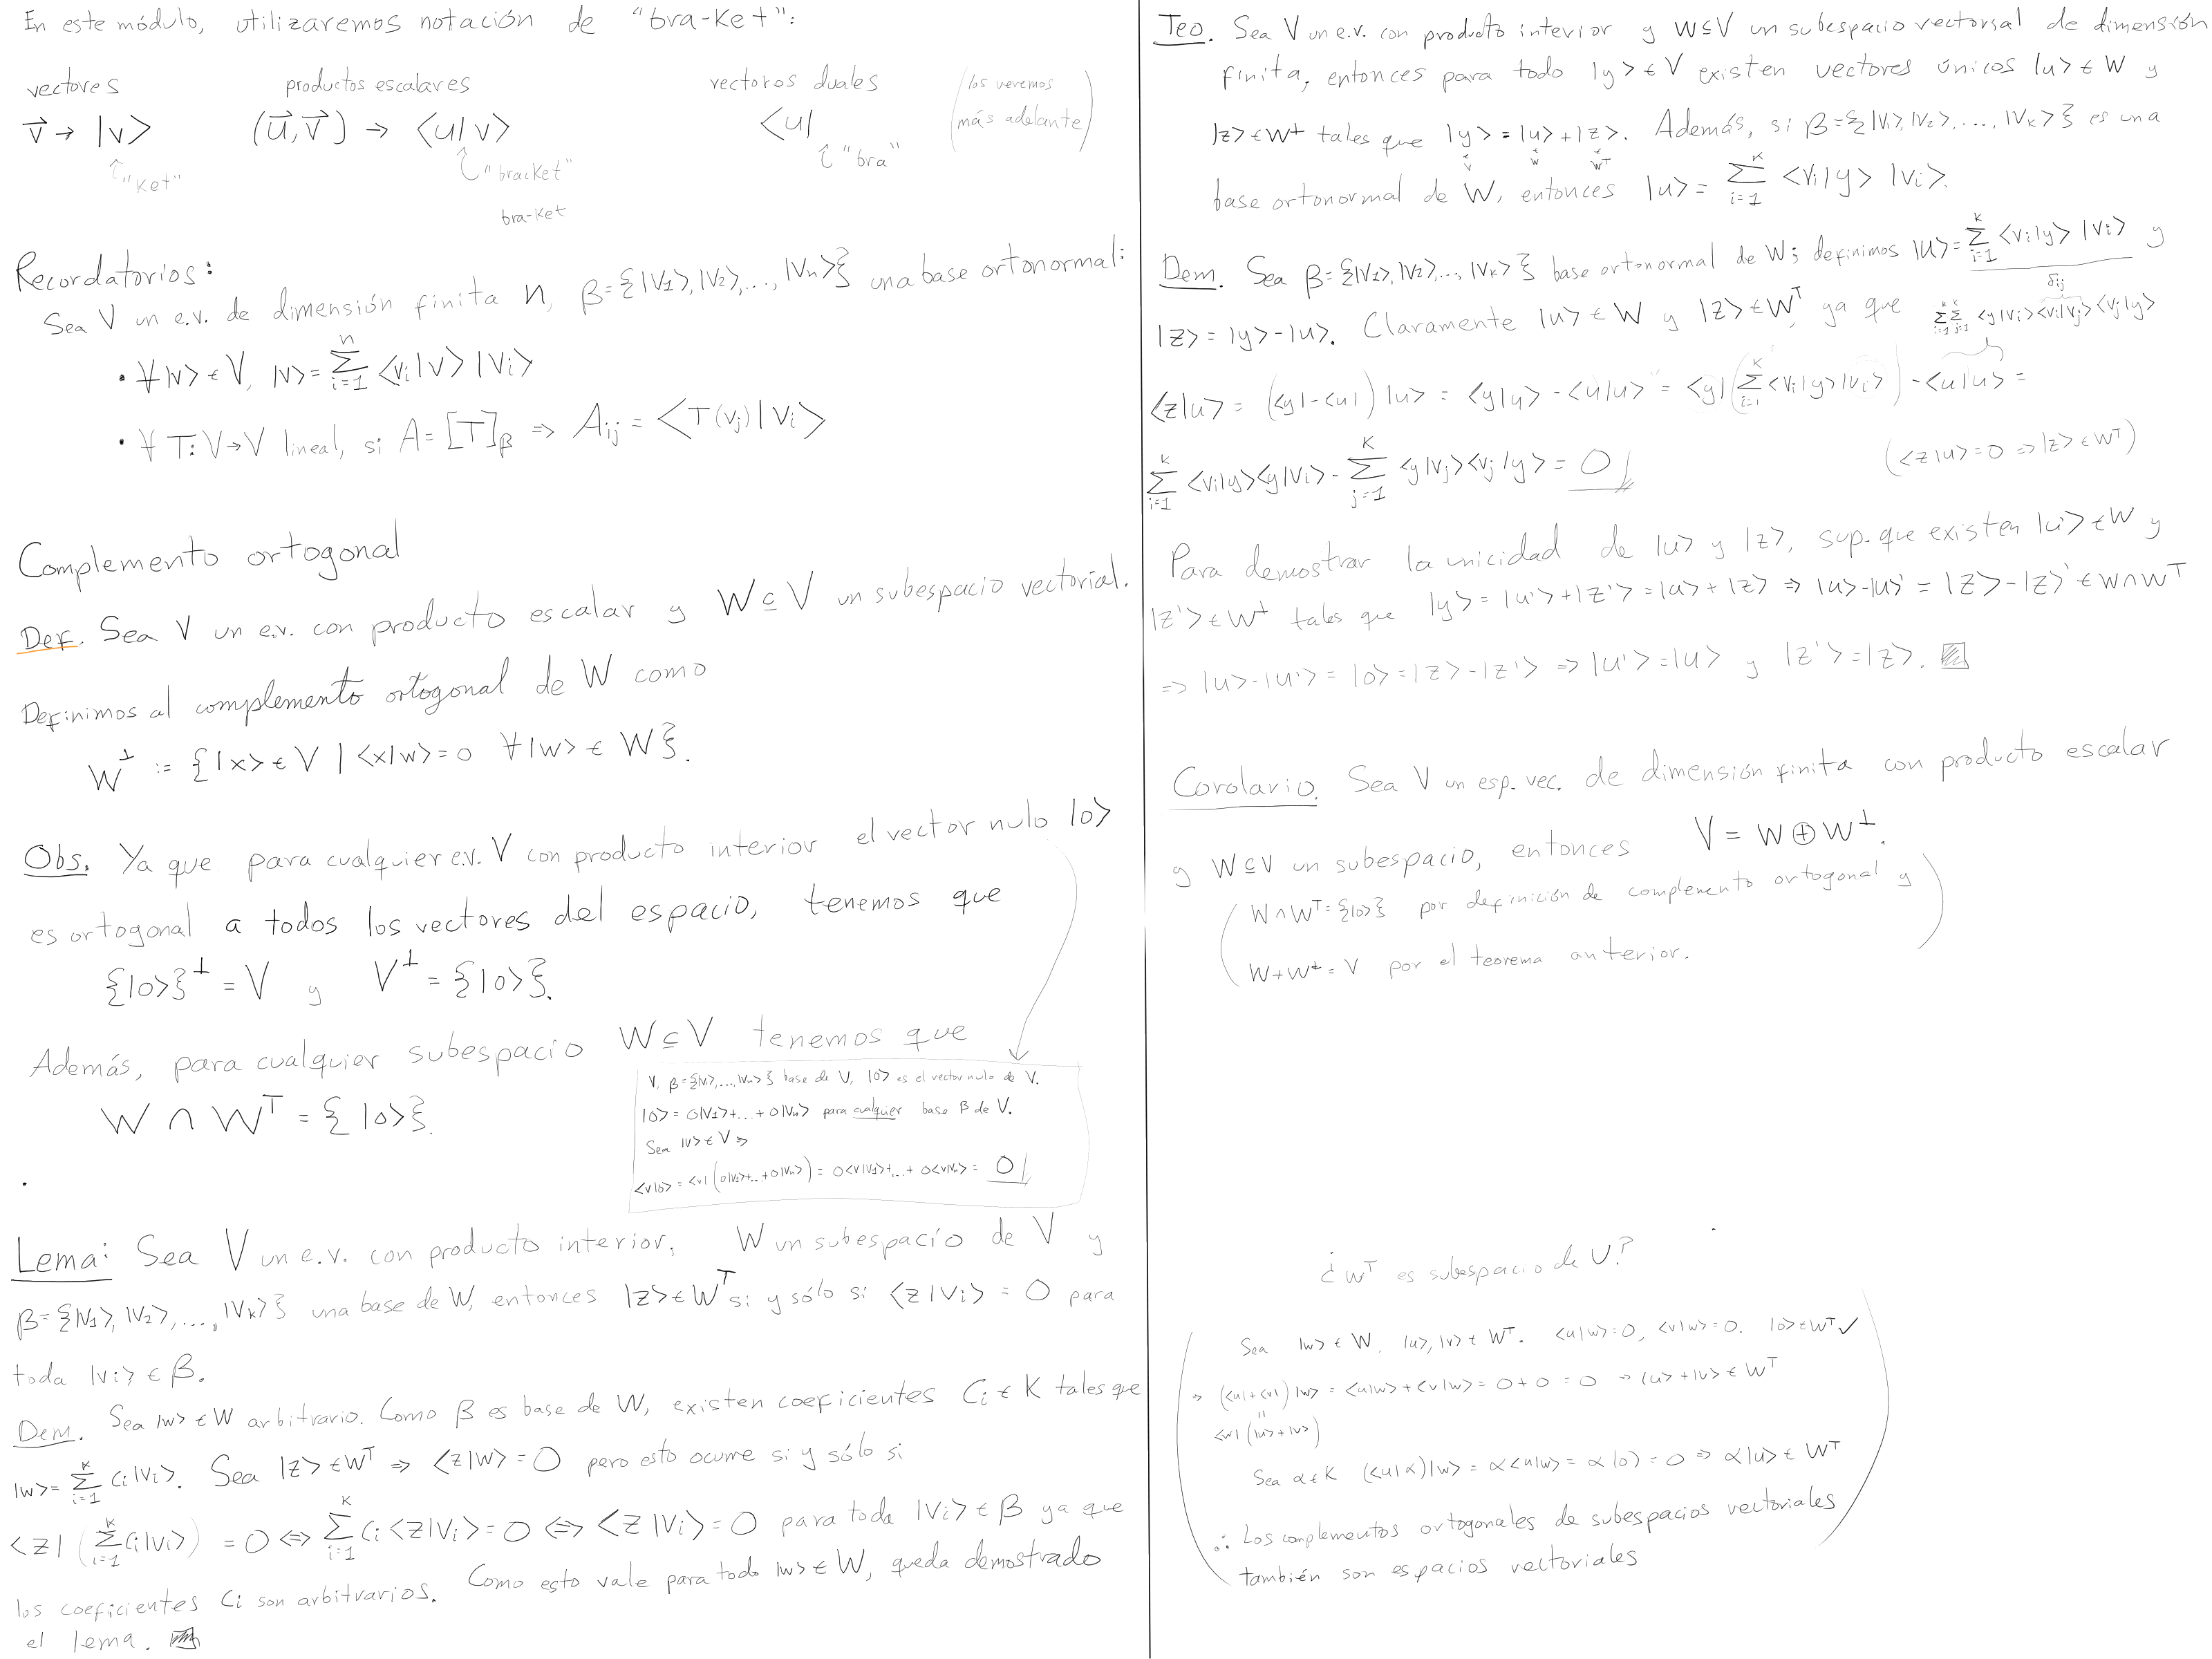 En este módulo, utilizaremos notación de "bra-ket":
vectores productos escalares vectores duales (los veremos más adelante)
v⃗ → |v> (u⃗, v⃗) → <u|v> <u|
"ket" "bracket" "bra"
bra-ket
Recordatorios:
Sea V un e.v. de dimensión finita n, β={|v1>,|v2>,...,|vn>} una base ortonormal:
• ∀|v> ∈ V, |v> = Σ_{i=1}^{n} <vi|v> |vi>
• ∀ T: V→V lineal, si A = [T]_β ⇒ Aij = <T(vj)|vi>
Complemento ortogonal
Def. Sea V un e.v. con producto escalar y W ⊆ V un subespacio vectorial.
Definimos al complemento ortogonal de W como
W^⊥ := {|x> ∈ V | <x|w> = 0 ∀|w> ∈ W}.
Obs. Ya que para cualquier e.v. V con producto interior el vector nulo |0>
es ortogonal a todos los vectores del espacio, tenemos que
{|0>}^⊥ = V y V^⊥ = {|0>}.
Además, para cualquier subespacio W ⊆ V tenemos que
W ∩ W^T = {|0>}.
V, β={|v1>,...,|vn>} base de V, |0> es el vector nulo de V.
|0> = 0|v1>+...+0|vn> para cualquier base β de V.
Sea |v> ∈ V ⇒
<v|0> = <v|(0|v1>+...+0|vn>) = 0<v|v1>+...+0<v|vn> = 0
Lema: Sea V un e.v. con producto interior, W un subespacio de V y
β={|v1>,|v2>,...,|vk>} una base de W, entonces |z> ∈ W^T si y sólo si <z|vi> = 0 para
toda |vi> ∈ β.
Dem. Sea |w> ∈ W arbitrario. Como β es base de W, existen coeficientes Ci ∈ K tales que
|w> = Σ_{i=1}^{k} Ci|vi>. Sea |z> ∈ W^T ⇒ <z|w> = 0 pero esto ocurre si y sólo si
<z|(Σ_{i=1}^{k} Ci|vi>) = 0 ⇔ Σ_{i=1}^{k} Ci<z|vi> = 0 ⇔ <z|vi> = 0 para toda |vi> ∈ β ya que
los coeficientes Ci son arbitrarios. Como esto vale para todo |w> ∈ W, queda demostrado
el lema.
Teo. Sea V un e.v. con producto interior y W⊆V un subespacio vectorsal de dimensión
finita, entonces para todo |y> ∈ V existen vectores únicos |u> ∈ W y
|z> ∈ W^⊥ tales que |y> = |u> + |z>. Además, si β={|v1>,|v2>,...,|vk>} es una
V W W^T
base ortonormal de W, entonces |u> = Σ_{i=1}^{k} <vi|y> |vi>.
Dem. Sea β={|v1>,|v2>,...,|vk>} base ortonormal de W; definimos |u> = Σ_{i=1}^{k} <vi|y> |vi> y
|z> = |y> - |u>. Claramente |u> ∈ W y |z> ∈ W^T, ya que Σ_{i=1}^{k} Σ_{j=1}^{k} <y|vi><vi|vj><vj|y>
δij
<z|u> = (<y|-<u|)|u> = <y|u> - <u|u> = <y|(Σ_{i=1}^{k} <vi|y>|vi>) - <u|u> =
Σ_{i=1}^{k} <vi|y><y|vi> - Σ_{j=1}^{k} <y|vj><vj|y> = 0 (<z|u>=0 ⇒ |z> ∈ W^T)
Para demostrar la unicidad de |u> y |z>, sup. que existen |u'> ∈ W y
|z'> ∈ W^⊥ tales que |y> = |u'>+|z'> = |u>+|z> ⇒ |u>-|u>' = |z>-|z>' ∈ W∩W^T
⇒ |u>-|u'> = |0> = |z>-|z'> ⇒ |u'> = |u> y |z'> = |z>.
Corolario. Sea V un esp. vec. de dimensión finita con producto escalar
y W⊆V un subespacio, entonces V = W⊕W^⊥.
(W∩W^T={|0>} por definición de complemento ortogonal y
W+W^⊥ = V por el teorema anterior.)
¿W^T es subespacio de V?
Sea |w> ∈ W, |u>,|v> ∈ W^T. <u|w>=0, <v|w>=0. |0> ∈ W^T ✓
⇒ (<u|+<v|)|w> = <u|w>+<v|w> = 0+0 = 0 ⇒ |u>+|v> ∈ W^T
=
<w|(|u>+|v>)
Sea α ∈ K (<u|α)|w> = α<u|w> = α(0) = 0 ⇒ α|u> ∈ W^T
∴ Los complementos ortogonales de subespacios vectoriales
también son espacios vectoriales